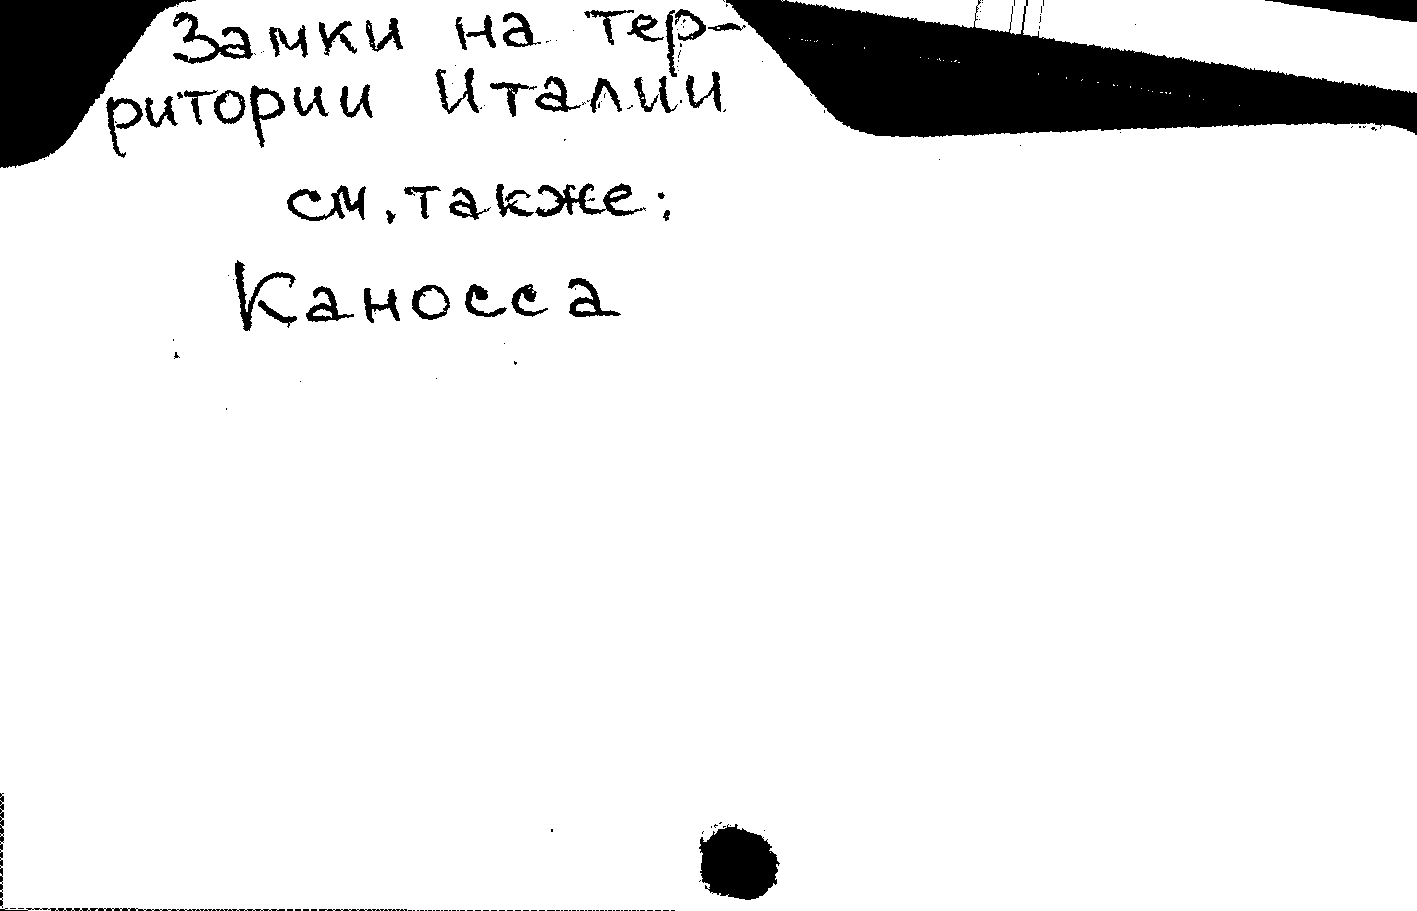 Замки на тер-
ритории Италии
см. также:
Каносса